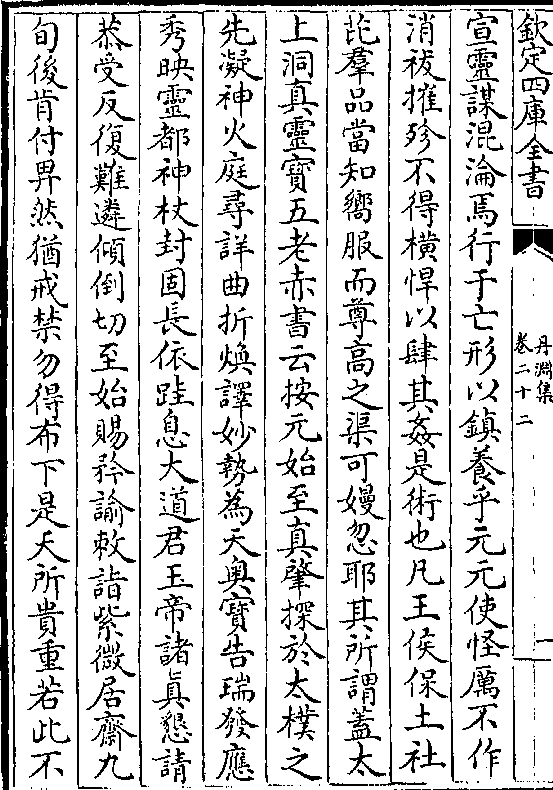 欽定四庫全書
丹淵集
卷二十二
一
宣靈謀混淪焉行于亡形以鎮養乎元元使怪厲不作
消祓摧殄不得橫悍以肆其姦是術也凡王侯保土社
芘羣品當知嚮服而尊高之渠可嫚忽耶其所謂蓋太
上洞真靈寶五老赤書云按元始至真肇探於太樸之
先凝神火庭尋詳曲折煥譯妙埶為天奥寶告瑞發應
秀映靈都神杖封固長依跬息大道君玉帝諸真懇請
恭受反復難遴傾倒切至始賜矜諭敕詣紫微居齋九
旬後肯付畀然猶戒禁勿得布下是天所貴重若此不